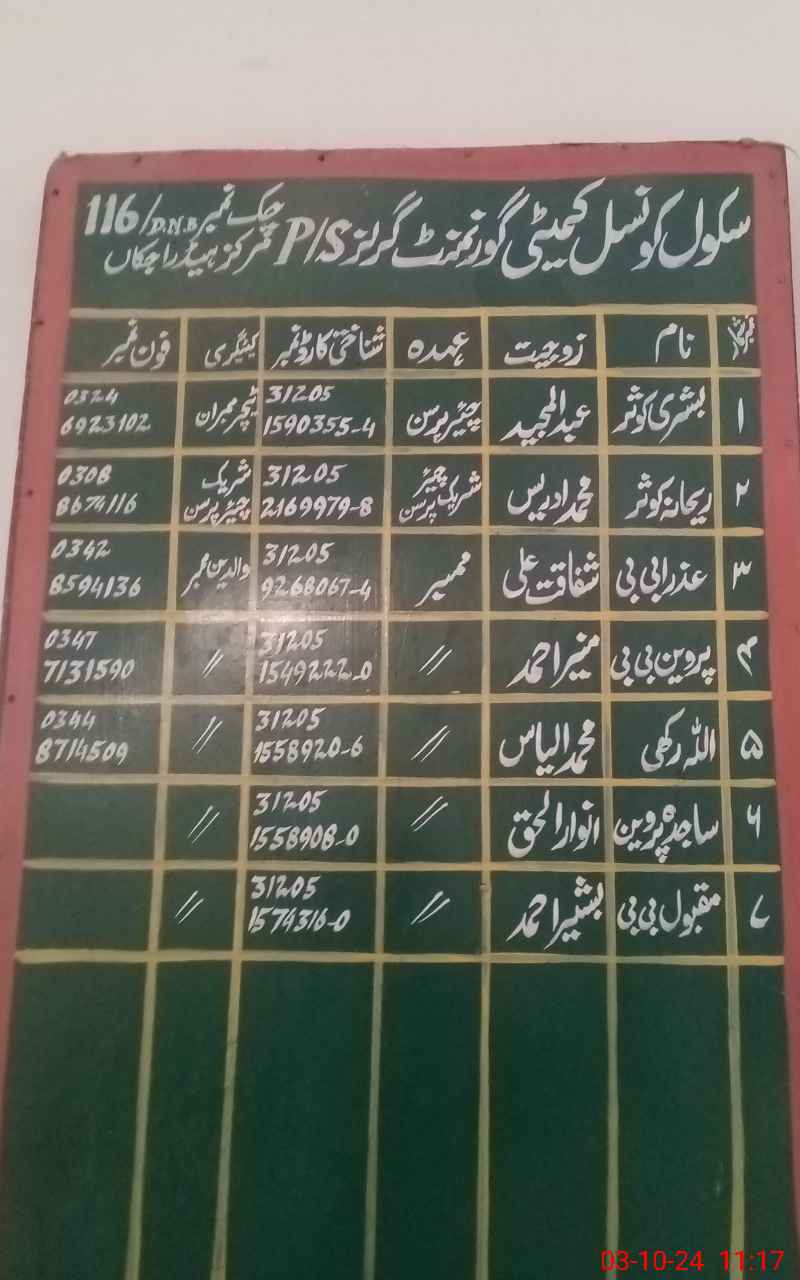 سکول کونسل کمیٹی گورنمنٹ گرلز P/S چک نمبر 116/D.N.B
مرکز ہیڈراجکاں
نمبر شمار نام زوجیت عہدہ شناختی کارڈ نمبر کیٹیگری فون نمبر
۱ بشریٰ کوثر عبدالمجید چیئرپرسن 31205 1590355-4 ٹیچر ممبران 0324 6923102
۲ ریحانہ کوثر محمد ادریس شریک چیئر پرسن 31205 2169979-8 شریک چیئرپرسن 0308 8674116
۳ عذرا بی بی شفاقت علی ممبر 31205 9268067-4 والدین ممبر 0342 8594136
۴ پروین بی بی منیر احمد // 31205 1549222-0 // 0347 7131590
۵ اللہ رکھی محمد الیاس // 31205 1558920-6 // 0344 8714509
۶ ساجدہ پروین انوار الحق // 31205 1558908-0 //
۷ مقبول بی بی بشیر احمد // 31205 1574316-0 //
03-10-24 11:17